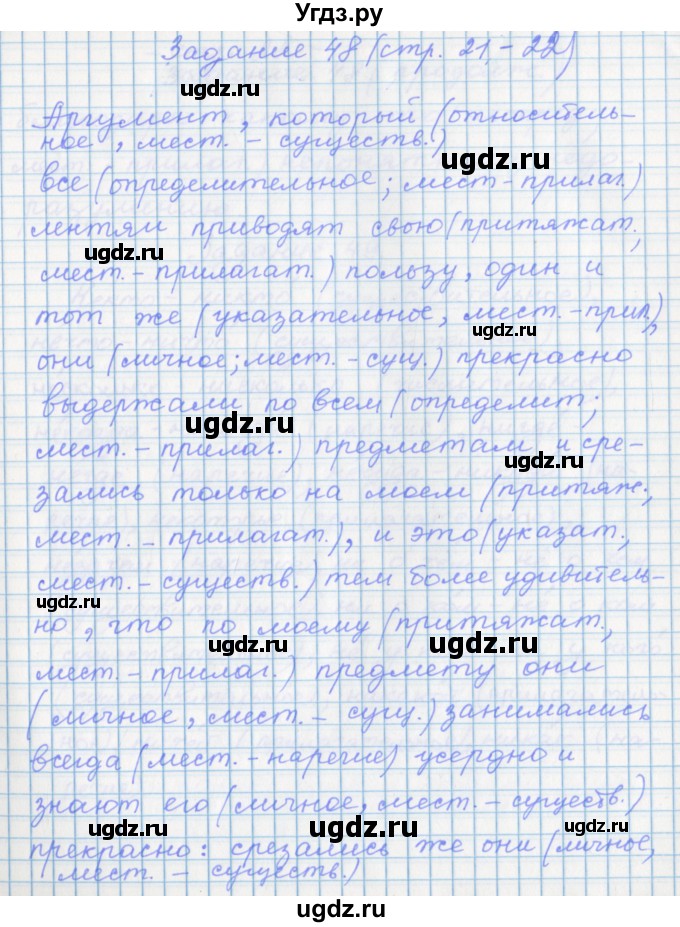 Угдз.ру
Задание 48 (стр. 21 - 22)
ugdz.ru
Аргумент, который (относитель-
ное, мест. - существ.)
ugdz.ru
все (определительное; мест-прилаг.)
лентяи приводят свою (притяжат.,
ugdz.ru
мест. - прилагат.) пользу, один и
тот же (указательное, мест. - прил.),
ugdz.ru
они (личное; мест. - сущ.) прекрасно
выдержали по всем (определит;
ugdz.ru
мест. - прилаг.) предметам и сре-
ugdz.ru
зались только на моем (притяж.,
мест. - прилагат.), и это (указат.,
мест. - существ.) тем более удивитель-
ugdz.ru
но, что по моему (притяжат.,
ugdz.ru
мест. - прилаг.) предмету они
(личное, мест. - сущ.) занимались
всегда (мест. - наречие) усердно и
знают его (личное, мест. - существ.)
ugdz.ru ugdz.ru ugdz.ru
прекрасно: срезались же они (личное,
мест. - существ.)
ugdz.ru